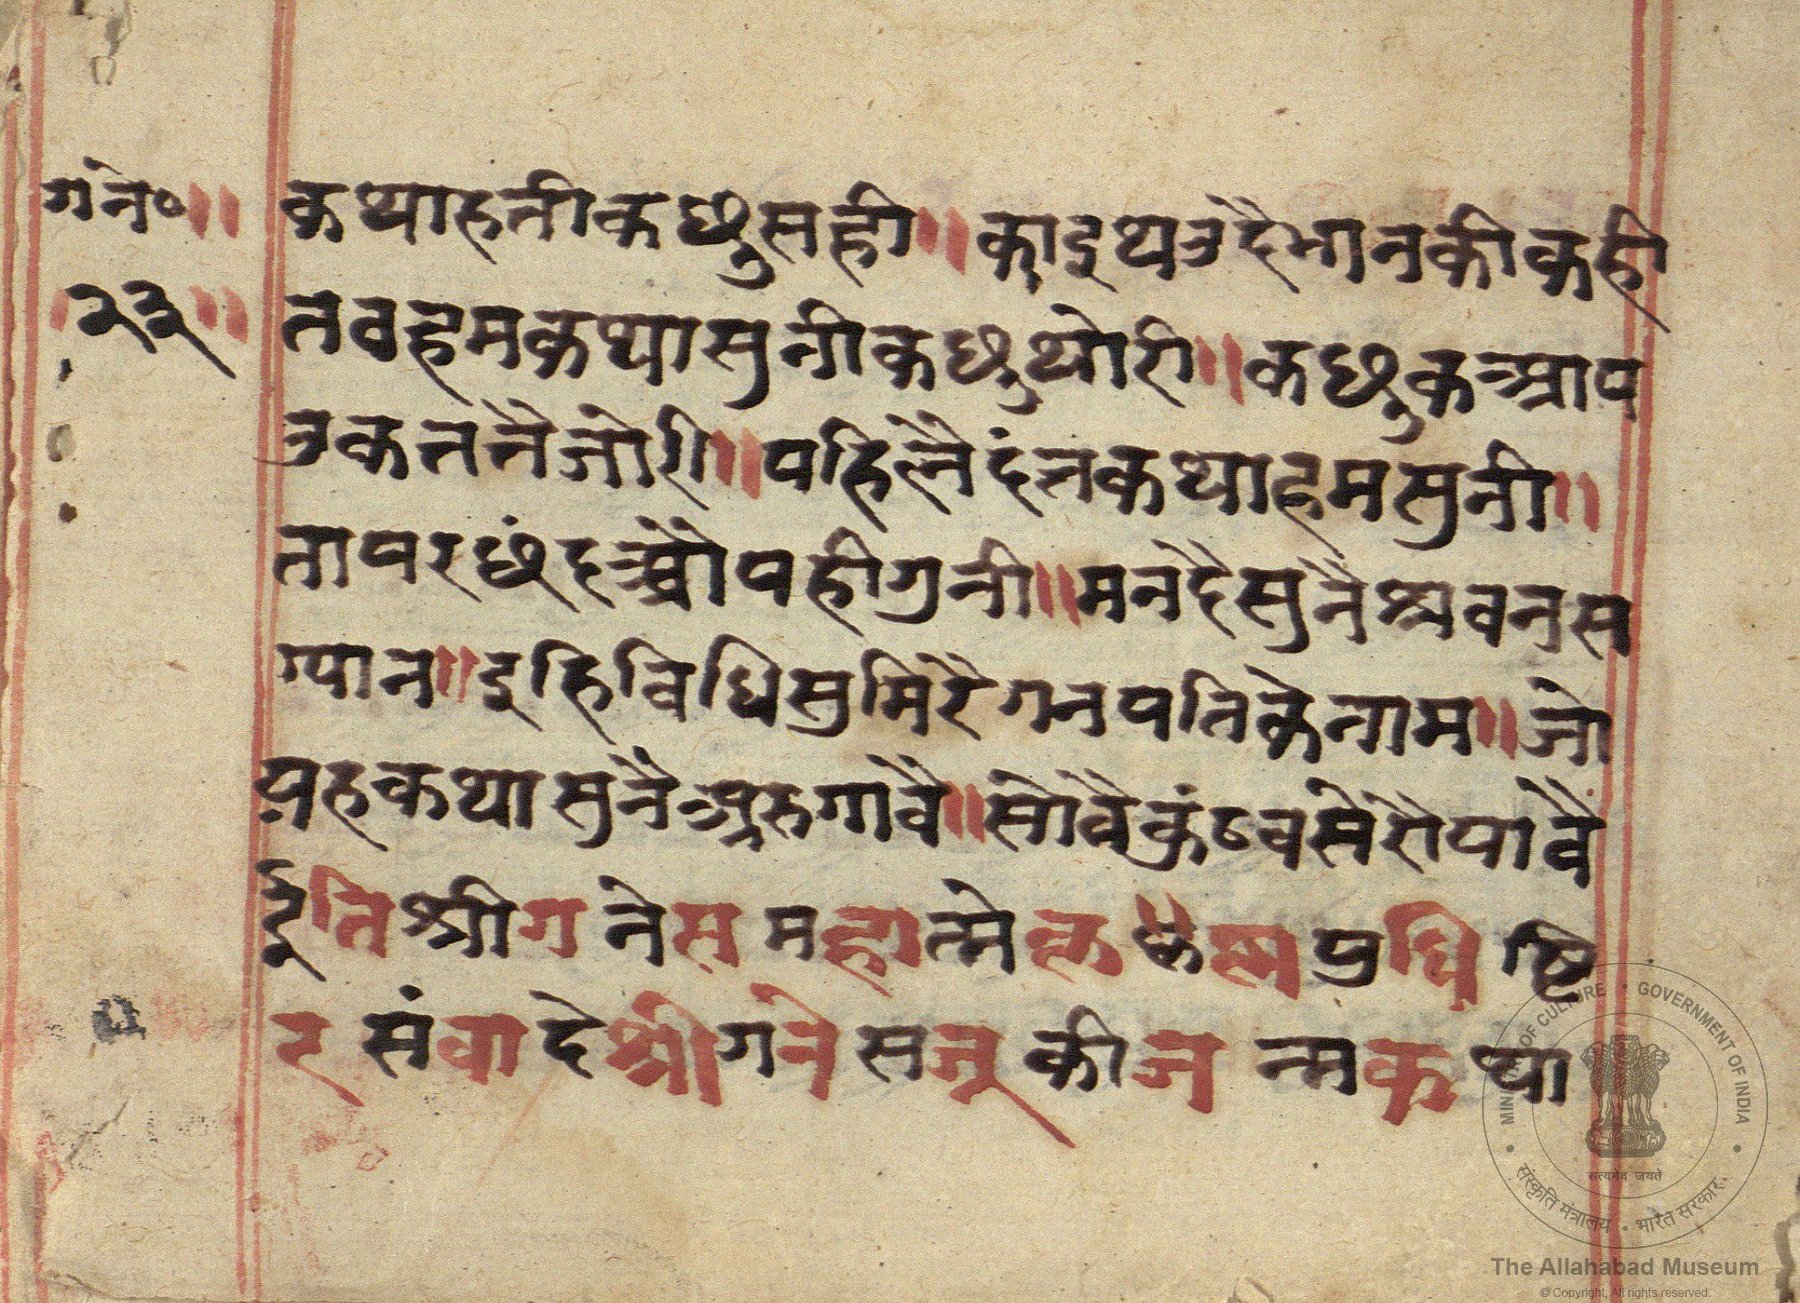 गने० ॥ कथाहतीकछुसही ॥ काइथउदैभानकीकही
॥ २३ ॥ तवहमकथासुनीकछुथोरी ॥ कछुकआप
उकततैजोरी ॥ पहिलैदंतकथाहमसुनी ॥
तापरछंदचौपहीगुनी ॥ मनदैसुनैश्रवनस
ग्यान ॥ इहिविधिसुमिरैगनपतिकेनाम ॥ जो
यहकथासुनैअरुगावै ॥ सोवैकुंठवसेरौपावै
ईतिश्रीगनेसमहात्मे प्रधिष्ठि
रसंवादेश्रीगनेसजूकीजन्मकथा
MINISTRY OF CULTURE • GOVERNMENT OF INDIA
सत्यमेव जयते
संस्कृति मंत्रालय • भारत सरकार
The Allahabad Museum
© Copyright, All rights reserved.